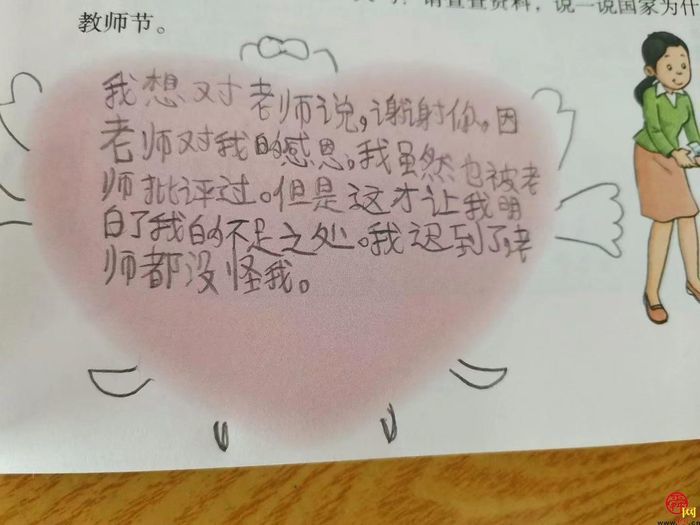 请查查资料，说一说国家为什
教师节。
我想对老师说，谢谢你。因
老师对我的感恩。我虽然也被老
师批评过。但是这才让我明
白了我的不足之处。我迟到了老
师都没怪我。